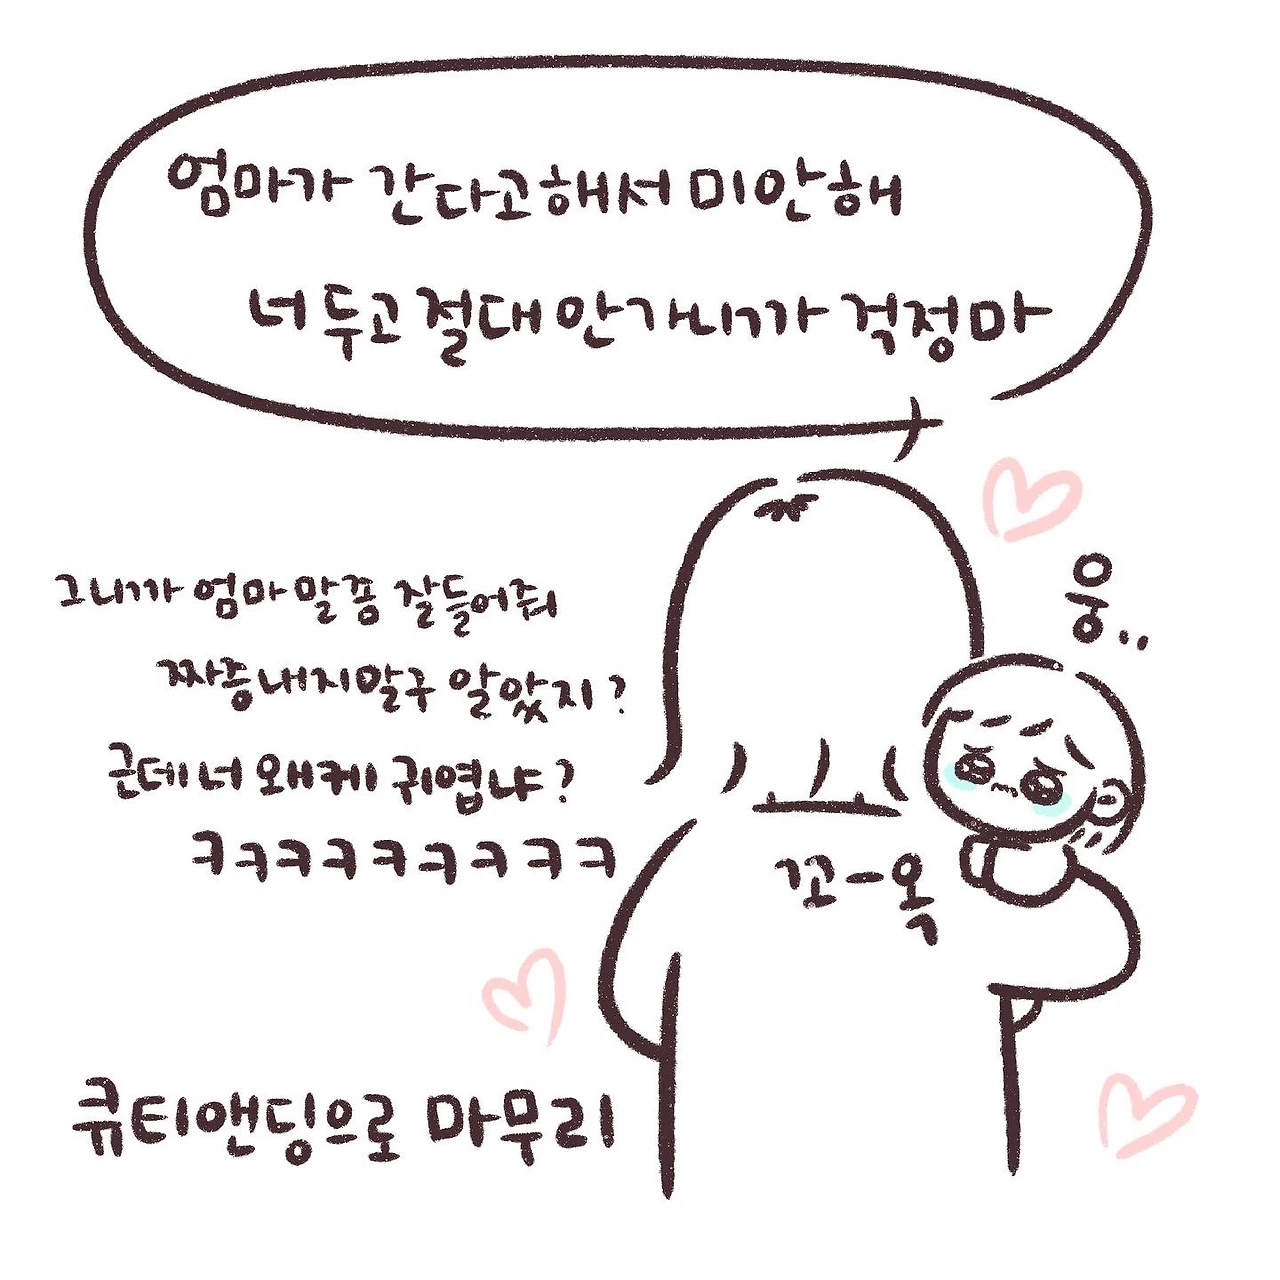 엄마가 간다고해서 미안해
너 두고 절대 안가니까 걱정마
웅..
그니까 엄마 말쫌 잘들어줘
짜증내지말구 알았지?
근데 너 왜케 귀엽냐?
ㅋㅋㅋㅋㅋㅋㅋㅋㅋ
꼬-옥
큐티앤딩으로 마무리